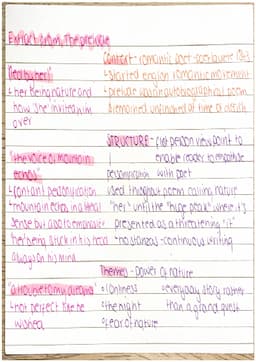 Extract from, The prelude
Context - romantic poet - poet laureate 1843
(led by her)
↳ started english romantic movement
↳ her being nature and
↳ prelude was an autobiographical poem
how she invited him
remained unfinished at time of death
over
STRUCTURE - first person view point to
enable reader to empathise
with poet
"the voice of mountain
echoes"
personification
↳ constant personification
used throughout poem calling nature
↳ mountain echos in a literal
"her" until the "huge peak" where it's
sense but also to emphasise
presented as a threatening "it"
her being stuck in his head
↳ no stanzas - continuous writing
always on his mind
Themes - power of nature
"a trouble to my dreams"
↳ loneliness
↳ everyday story rather
↳ not perfect like he
↳ the night
than a grand quest
wished
↳ fear of nature